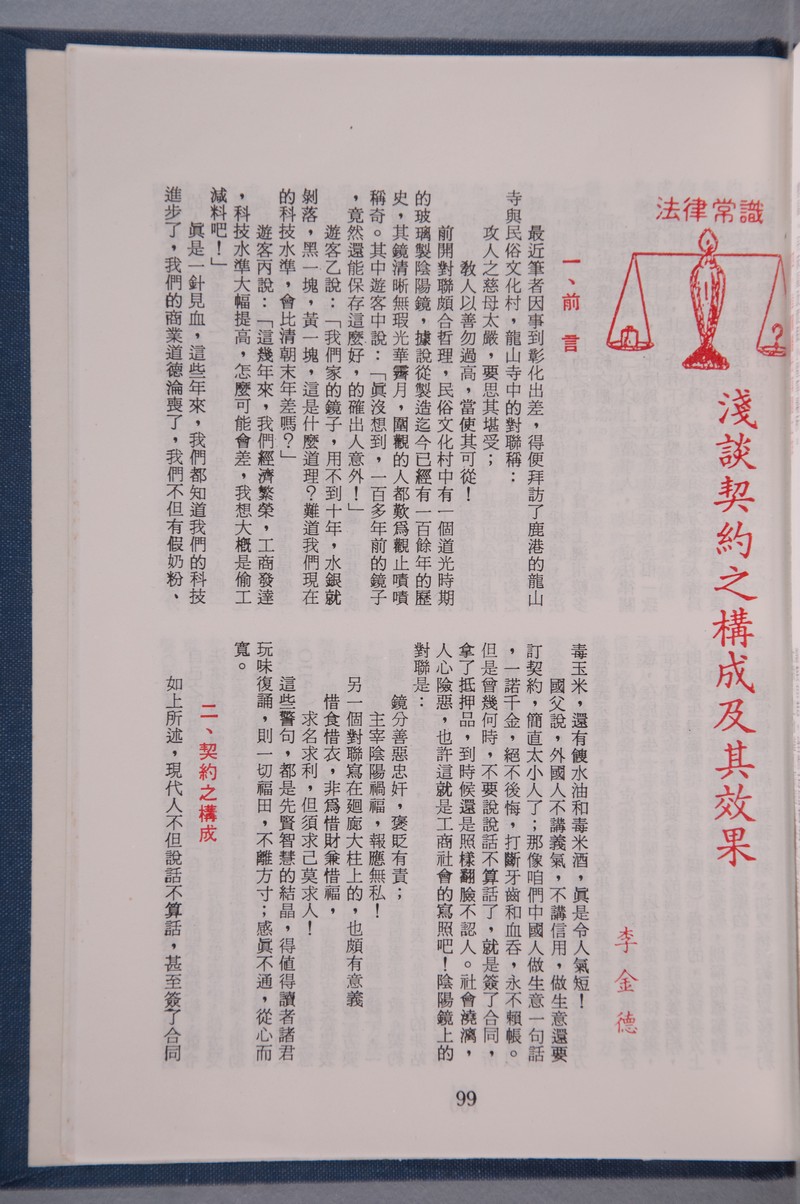 法律常識
淺談契約之構成及其效果
李金德
一、前言
最近筆者因事到彰化出差，得便拜訪了鹿港的龍山
寺與民俗文化村，龍山寺中的對聯稱：
攻人之慈母太嚴，要思其堪受；
教人以善勿過高，當使其可從！
前開對聯頗合哲理，民俗文化村中有一個道光時期
的玻璃製陰陽鏡，據說從製造迄今已經有一百餘年的歷
史，其鏡清晰無瑕光華霽月，圍觀的人都歎爲觀止嘖嘖
稱奇。其中遊客中說：「眞沒想到，一百多年前的鏡子
，竟然還能保存這麼好，的確出人意外！」
遊客乙說：「我們家的鏡子，用不到十年，水銀就
剝落，黑一塊，黃一塊，這是什麼道理？難道我們現在
的科技水準，會比清朝末年差嗎？」
遊客丙說：「這幾年來，我們經濟繁榮，工商發達
，科技水準大幅提高，怎麼可能會差，我想大概是偷工
減料吧！」
眞是一針見血，這些年來，我們都知道我們的科技
進步了，我們的商業道德淪喪了，我們不但有假奶粉、
毒玉米，還有餿水油和毒米酒，眞是令人氣短！
國父說，外國人不講義氣，不講信用，做生意還要
訂契約，簡直太小人了；那像咱們中國人做生意一句話
，一諾千金，絕不後悔，打斷牙齒和血吞，永不賴帳。
但是曾幾何時，不要說說話不算話了，就是簽了合同，
拿了抵押品，到時候還是照樣翻臉不認人。社會澆漓，
人心險惡，也許這就是工商社會的寫照吧！陰陽鏡上的
對聯是：
鏡分善惡忠奸，褒貶有責；
主宰陰陽禍福，報應無私！
另一個對聯寫在廻廊大柱上的，也頗有意義
惜食惜衣，非爲惜財兼惜福，
求名求利，但須求己莫求人！
這些警句，都是先賢智慧的結晶，得值得讀者諸君
玩味復誦，則一切福田，不離方寸；感眞不通，從心而
寬。
二、契約之構成
如上所述，現代人不但說話不算話，甚至簽了合同
99